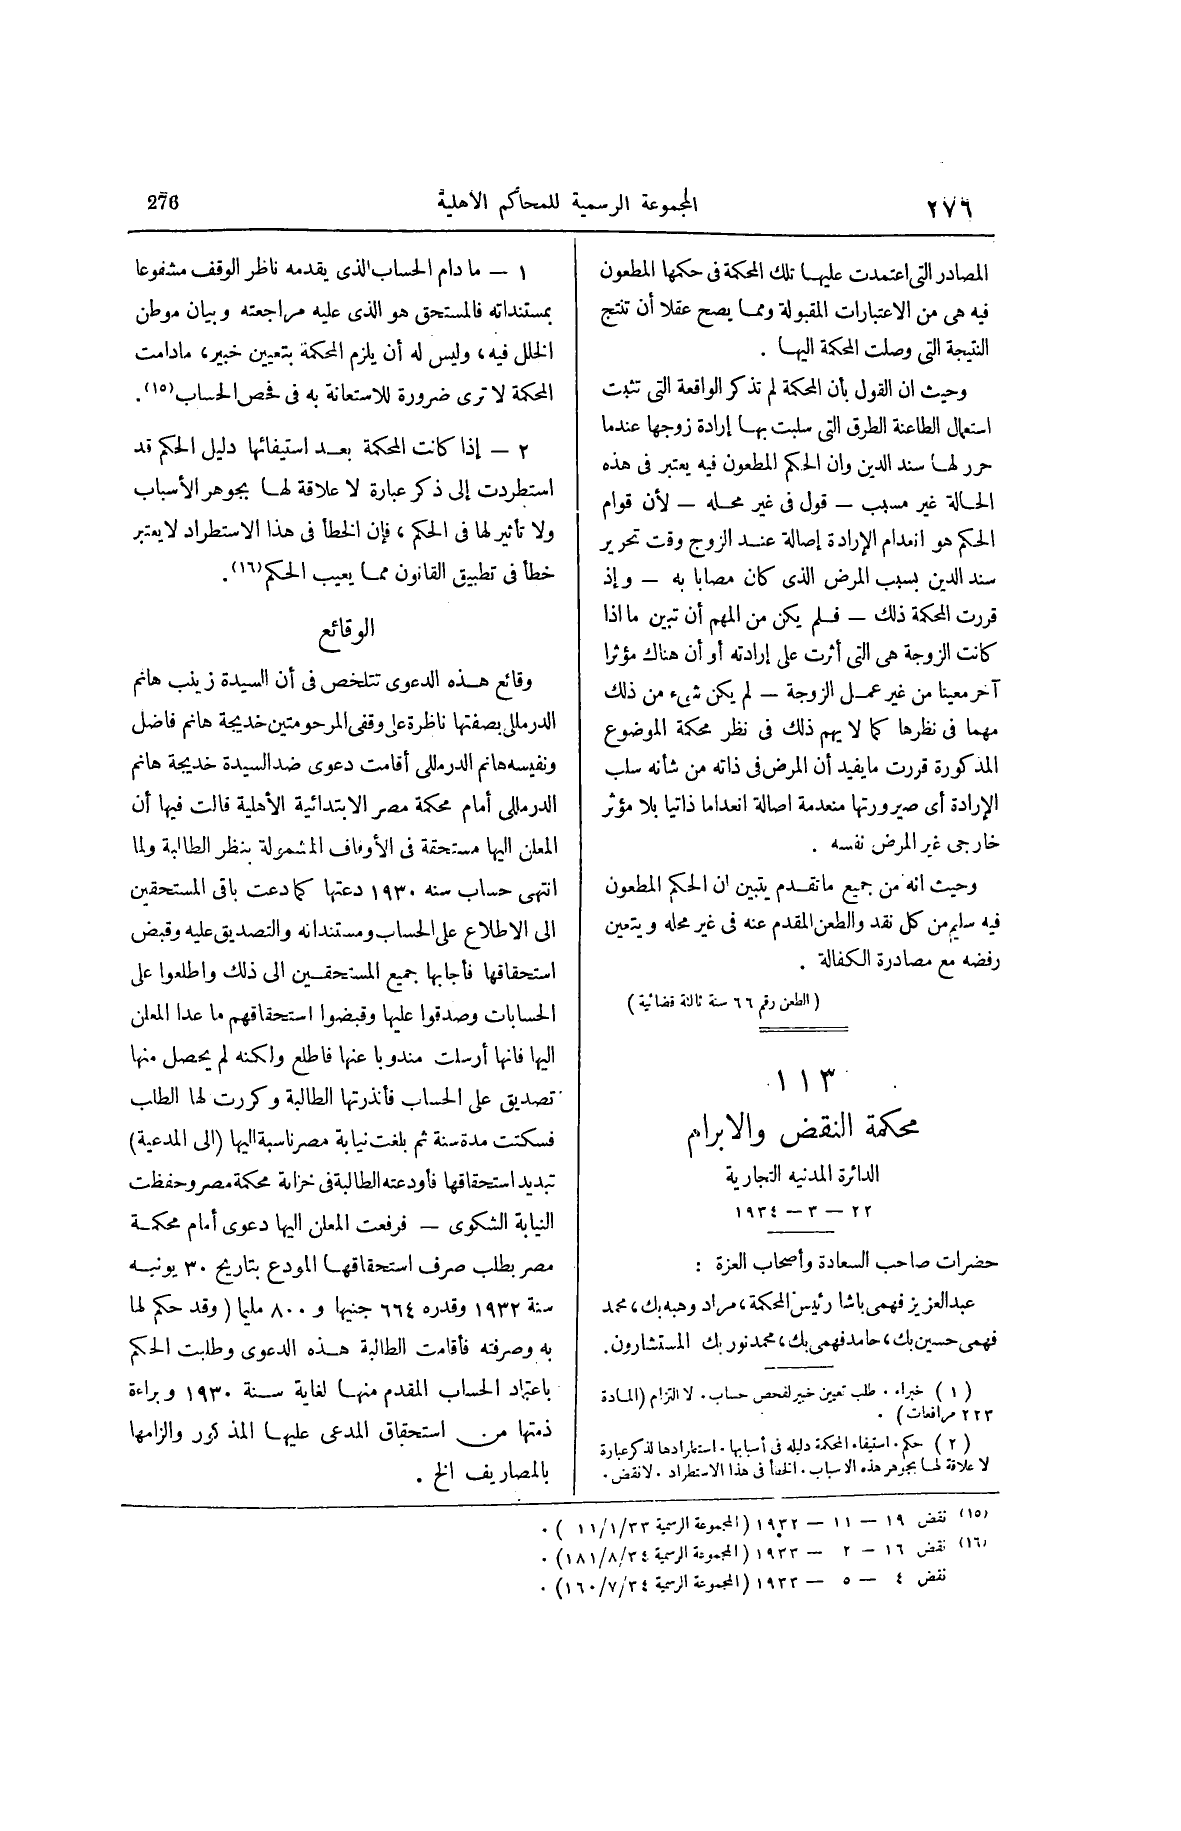 ٢٧٦
المجموعة الرسمية للمحاكم الأهلية
276
المصادر التى اعتمدت عليها تلك المحكمة فى حكمها المطعون
فيه هى من الاعتبارات المقبولة ومما يصح عقلا أن تنتج
النتيجة التى وصلت المحكمة اليها .
وحيث ان القول بأن المحكمة لم تذكر الواقعة التى تثبت
استعمال الطاعنة الطرق التى سلبت بها إرادة زوجها عندما
حرر لها سند الدين وان الحكم المطعون فيه يعتبر فى هذه
الحالة غير مسبب – قول فى غير محله – لأن قوام
الحكم هو انعدام الإرادة إصالة عند الزوج وقت تحرير
سند الدين بسبب المرض الذى كان مصابا به – وإذ
قررت المحكمة ذلك – فلم يكن من المهم أن تبين ما اذا
كانت الزوجة هى التى أثرت على إرادته أو أن هناك مؤثرا
آخر معينا من غير عمل الزوجة – لم يكن شىء من ذلك
مهما فى نظرها كما لا يهم ذلك فى نظر محكمة الموضوع
المذكورة قررت مايفيد أن المرض فى ذاته من شأنه سلب
الإرادة أى صيرورتها منعدمة اصالة انعداما ذاتيا بلا مؤثر
خارجى غير المرض نفسه .
وحيث انه من جميع ماتقدم يتبين ان الحكم المطعون
فيه سليم من كل نقد والطعن المقدم عنه فى غير محله ويتعين
رفضه مع مصادرة الكفالة .
( الطعن رقم ٦٦ سنة ثالثة قضائية )
١١٣
محكمة النقض والابرام
الدائرة المدنيه التجارية
٢٢ – ٣ – ١٩٣٤
حضرات صاحب السعادة وأصحاب العزة :
عبدالعزيز فهمى باشا رئيس المحكمة، مراد وهبه بك، محمد
فهمى حسين بك، حامد فهمى بك، محمد نور بك المستشارون.
( ١ ) خبراء . طلب تعيين خبير لفحص حساب . لا التزام (المادة
٢٢٣ مرافعات) .
( ٢ ) حكم . استيفاء المحكمة دليله فى أسبابها . استطرادها لذكر عبارة
لا علاقة لها بجوهر هذه الاسباب . الخطأ فى هذا الاستطراد . لا نقض .
١ – ما دام الحساب الذى يقدمه ناظر الوقف مشفوعا
بمستنداته فالمستحق هو الذى عليه مراجعته وبيان موطن
الخلل فيه، وليس له أن يلزم المحكمة بتعيين خبير، مادامت
المحكمة لا ترى ضرورة للاستعانة به فى فحص الحساب(١٥).
٢ – إذا كانت المحكمة بعد استيفائها دليل الحكم قد
استطردت إلى ذكر عبارة لا علاقة لها بجوهر الأسباب
ولا تأثير لها فى الحكم ، فإن الخطأ فى هذا الاستطراد لا يعتبر
خطأ فى تطبيق القانون مما يعيب الحكم(١٦).
الوقائع
وقائع هذه الدعوى تتلخص فى أن السيدة زينب هانم
الدرمللى بصفتها ناظرة على وقفى المرحومتين خديجة هانم فاضل
ونفيسه هانم الدرمللى أقامت دعوى ضد السيدة خديجة هانم
الدرمللى أمام محكمة مصر الابتدائية الأهلية قالت فيها أن
المعلن اليها مستحقة فى الأوقاف المشمولة بنظر الطالبة ولما
انتهى حساب سنه ١٩٣٠ دعتها كما دعت باقى المستحقين
الى الاطلاع على الحساب ومستنداته والتصديق عليه وقبض
استحقاقها فأجابها جميع المستحقين الى ذلك واطلعوا على
الحسابات وصدقوا عليها وقبضوا استحقاقهم ما عدا المعلن
اليها فانها أرسلت مندوبا عنها فاطلع ولكنه لم يحصل منها
تصديق على الحساب فأنذرتها الطالبة وكررت لها الطلب
فسكتت مدة سنة ثم بلغت نيابة مصر ناسبة اليها (الى المدعية)
تبديد استحقاقها فأودعته الطالبة فى خزانة محكمة مصر وحفظت
النيابة الشكوى – فرفعت المعلن اليها دعوى أمام محكمة
مصر بطلب صرف استحقاقها المودع بتاريخ ٣٠ يونيه
سنة ١٩٣٢ وقدره ٦٦٤ جنيها و ٨٠٠ مليما ( وقد حكم لها
به وصرفته فأقامت الطالبة هذه الدعوى وطلبت الحكم
باعتماد الحساب المقدم منها لغاية سنة ١٩٣٠ وبراءة
ذمتها من استحقاق المدعى عليها المذكور والزامها
بالمصاريف الخ .
(١٥) نقض ١٩ – ١١ – ١٩٣٢ (المجموعة الرسمية ١١/١/٣٣ ) .
(١٦) نقض ١٦ – ٢ – ١٩٣٣ (المجموعة الرسمية ١٨١/٨/٣٤) .
نقض ٤ – ٥ – ١٩٣٣ (المجموعة الرسمية ١٦٠/٧/٣٤) .